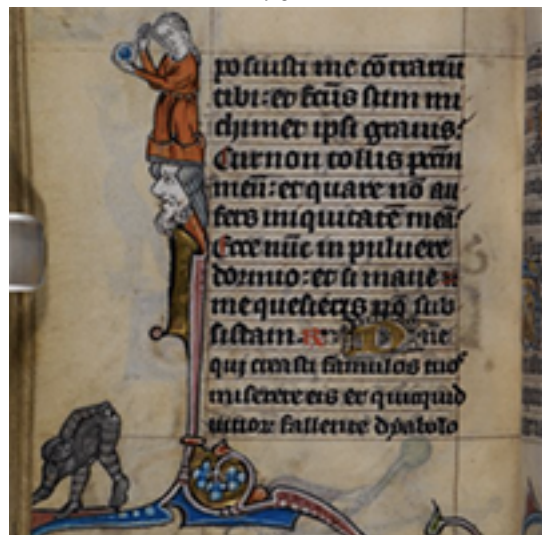 posuisti me cōtrariū
tibi: et fctūs sum mi
chimet ipsi grauis:
Cur non tollis pccm̄
meū: et quare nō au
fers iniquitatē meā:
Ecce nūc in puluere
dormio: et si mane
me quesieris nō sub
sistam. Dn̄e
qui creasti famulos tuos
miserere eis et quicquid
uitior fallente dyabolo